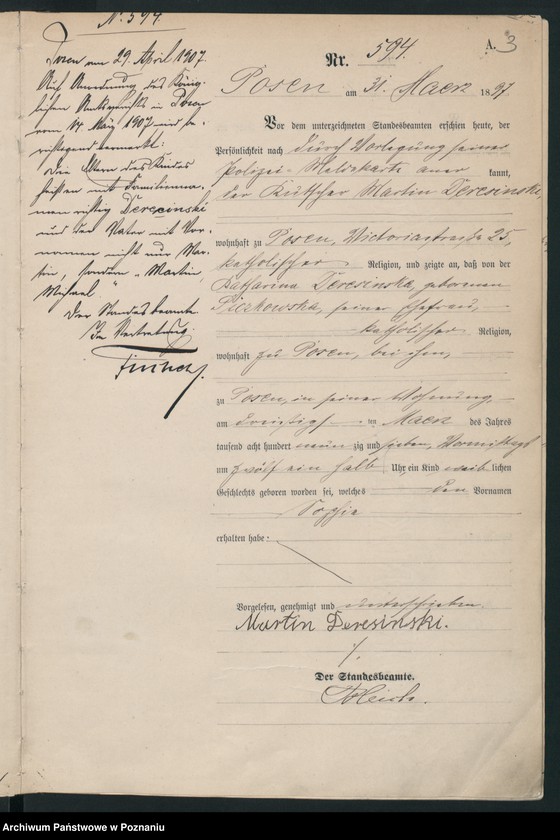 N. 594.
Posen am 29. April 1907.
Auf Anordnung des König-
lichen Amtsgerichts in Posen
vom 14. März 1907 wird be-
richtigend vermerkt:
Die Eltern des Kindes
heißen mit Familienna-
men richtig Derezinski
und der Vater mit Vor-
namen nicht nur Mar-
tin, sondern „Martin
Michael."
Der Standesbeamte
In Vertretung
A. 3
Nr. 594.
Posen am 31. Maerz 1897
Vor dem unterzeichneten Standesbeamten erschien heute, der
Persönlichkeit nach durch Vorlegung seiner
Polizei-Meldekarte aner kannt,
der Kutscher Martin Deresinski,
wohnhaft zu Posen, Victoriastraße 25,
katholischer Religion, und zeigte an, daß von der
Katharina Deresinska, geborenen
seiner Ehefrau,
katholischer Religion,
wohnhaft zu Posen, bei ihm,
zu Posen, in seiner Wohnung
am dreißigsten Maerz des Jahres
tausend acht hundert neun zig und sieben, Vormittags
um zwölf ein halb Uhr ein Kind weib lichen
Geschlechts geboren worden sei, welches den Vornamen
Sophie
erhalten habe:
Vorgelesen, genehmigt und unterschrieben.
Martin Deresinski.
Der Standesbeamte.
Archiwum Państwowe w Poznaniu